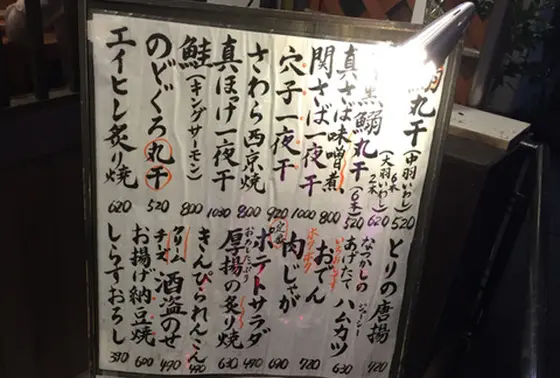 丸干(中羽いわし)520
鰯丸干(大羽いわし)620
6本 2本
(6本)520
真さば味噌煮 800
関さば一夜干 1000
穴子一夜干 920
さわら西京焼 800
真ほっけ一夜干 1030
鮭(キングサーモン)800
のどぐろ丸干 520
エイヒレ炙り焼 620
とりの唐揚 720
なつかしの
あげたて ハムカツ 630
ジューシー
おでん 720
ホクホク
肉じゃが 620
定番
ポテトサラダ 470
厚揚の炙り焼 630
きんぴられんこん 470
クリーム
チーズ 酒盗のせ 470
お揚げ納豆焼 600
しらすおろし 370